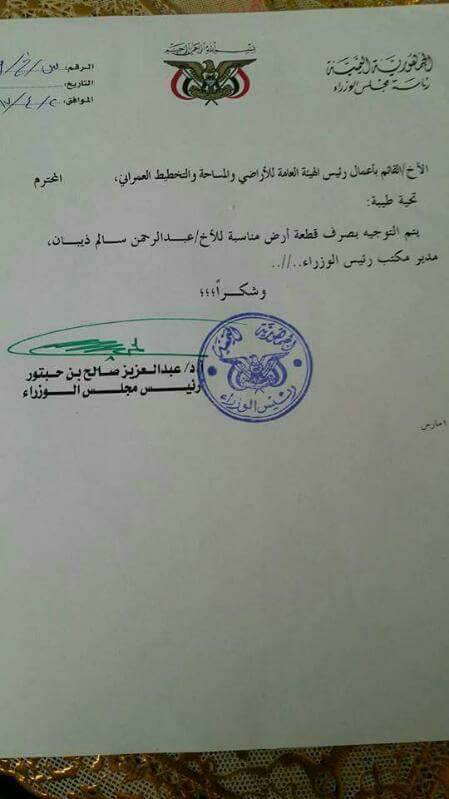 بسم الله الرحمن الرحيم
الجمهورية اليمنية
رئاسة مجلس الوزراء
الرقم:
التاريخ:
الموافق:
الأخ/القائم بأعمال رئيس الهيئة العامة للأراضي والمساحة والتخطيط العمراني، المحترم
تحية طيبة:
يتم التوجيه بصرف قطعة أرض مناسبة للأخ/عبدالرحمن سالم ذيبان،
مدير مكتب رئيس الوزراء..//..
وشكراً؛؛؛
أ.د/ عبدالعزيز صالح بن حبتور
رئيس مجلس الوزراء
الجمهورية اليمنية
رئيس الوزراء
مارس